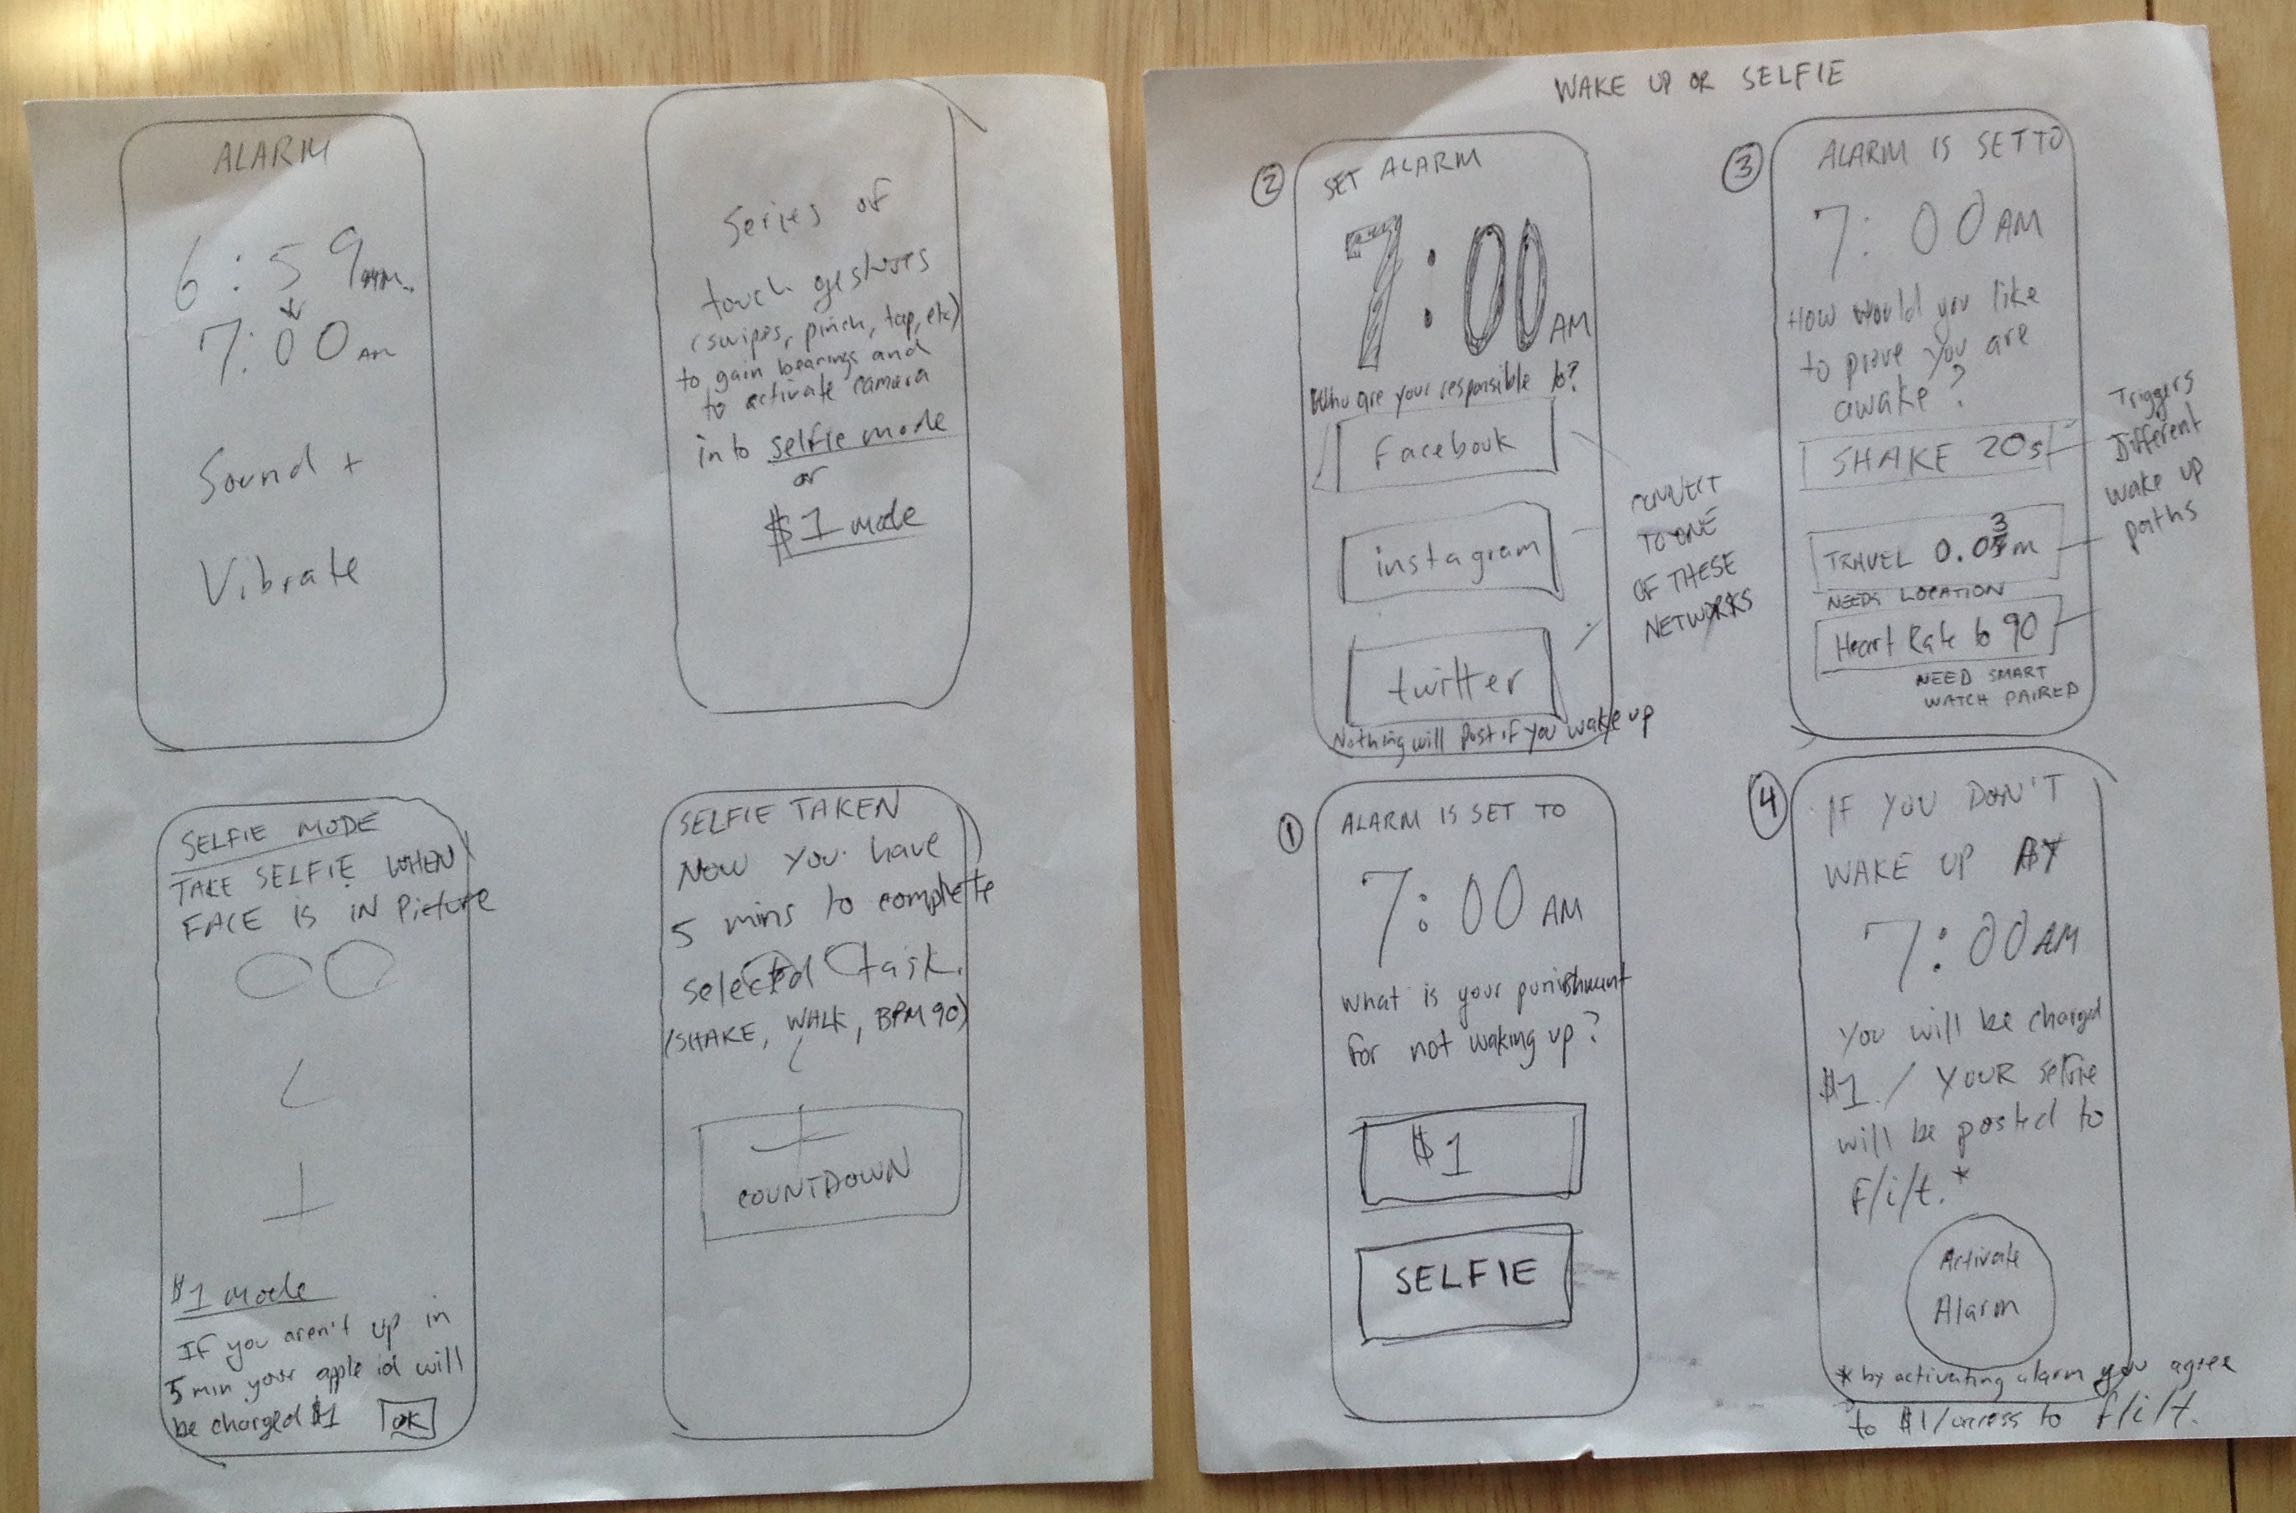 ALARM
6:59 AM
7:00 AM
Sound +
Vibrate
Series of
touch gestures
(swipes, pinch, tap, etc)
to gain bearings and
to activate camera
into selfie mode
or
$1 mode
SELFIE MODE
TAKE SELFIE WHEN
FACE IS IN Picture
$1 mode
If you aren't up in
5 min your apple id will
be charged $1 OK
SELFIE TAKEN
NOW you have
5 mins to complete
selected task.
(SHAKE, WALK, BPM 90)
COUNTDOWN
WAKE UP OR SELFIE
2
SET ALARM
7:00 AM
Who are your responsible to?
Facebook
instagram
twitter
Nothing will Post if you wake up
CONNECT
TO ONE
OF THESE
NETWORKS
3
ALARM IS SET TO
7:00 AM
How would you like
to prove you are
awake?
SHAKE 20s
TRAVEL 0.03m
NEEDS LOCATION
Heart Rate to 90
NEED SMART
WATCH PAIRED
Triggers
Different
wake up
paths
1
ALARM IS SET TO
7:00 AM
What is your punishment
for not waking up?
$1
SELFIE
4
IF YOU DON'T
WAKE UP AT
7:00 AM
You will be charged
$1 / YOUR selfie
will be posted to
F/i/t.*
Activate
Alarm
* by activating alarm you agree
to $1/access to f/i/t.